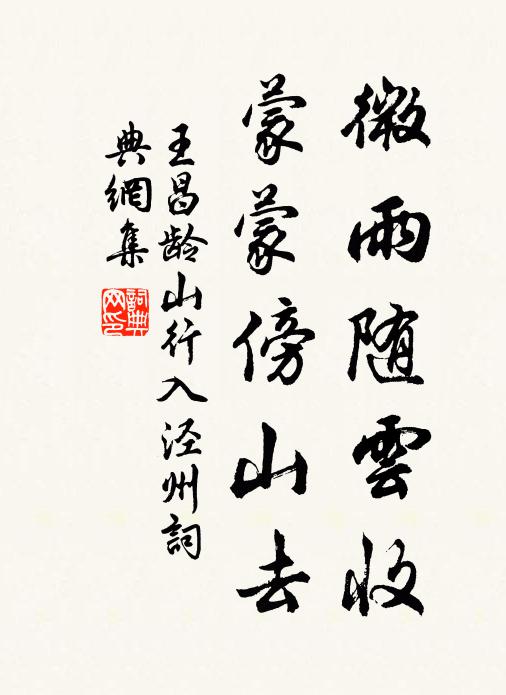 微雨随雲收
蒙蒙傍山去
王昌龄山行入泾州詞
典網集
詞典网印